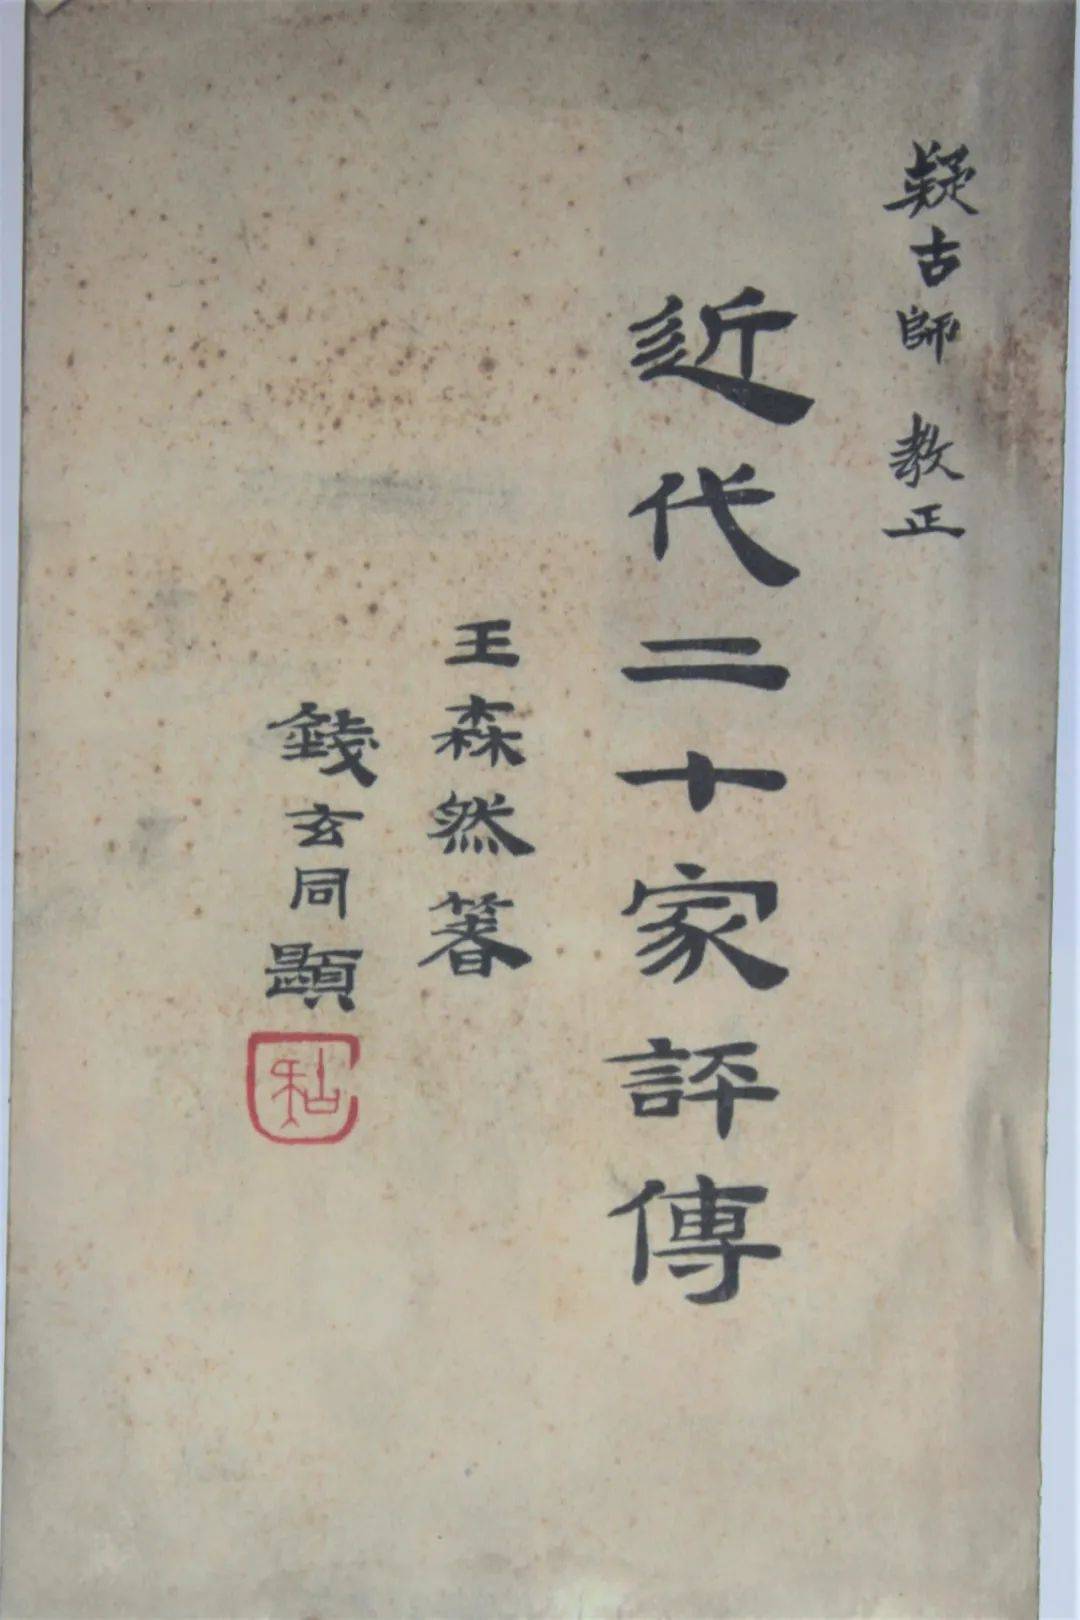 疑古師 教正
近代二十家評傳
王森然箸
錢玄同題